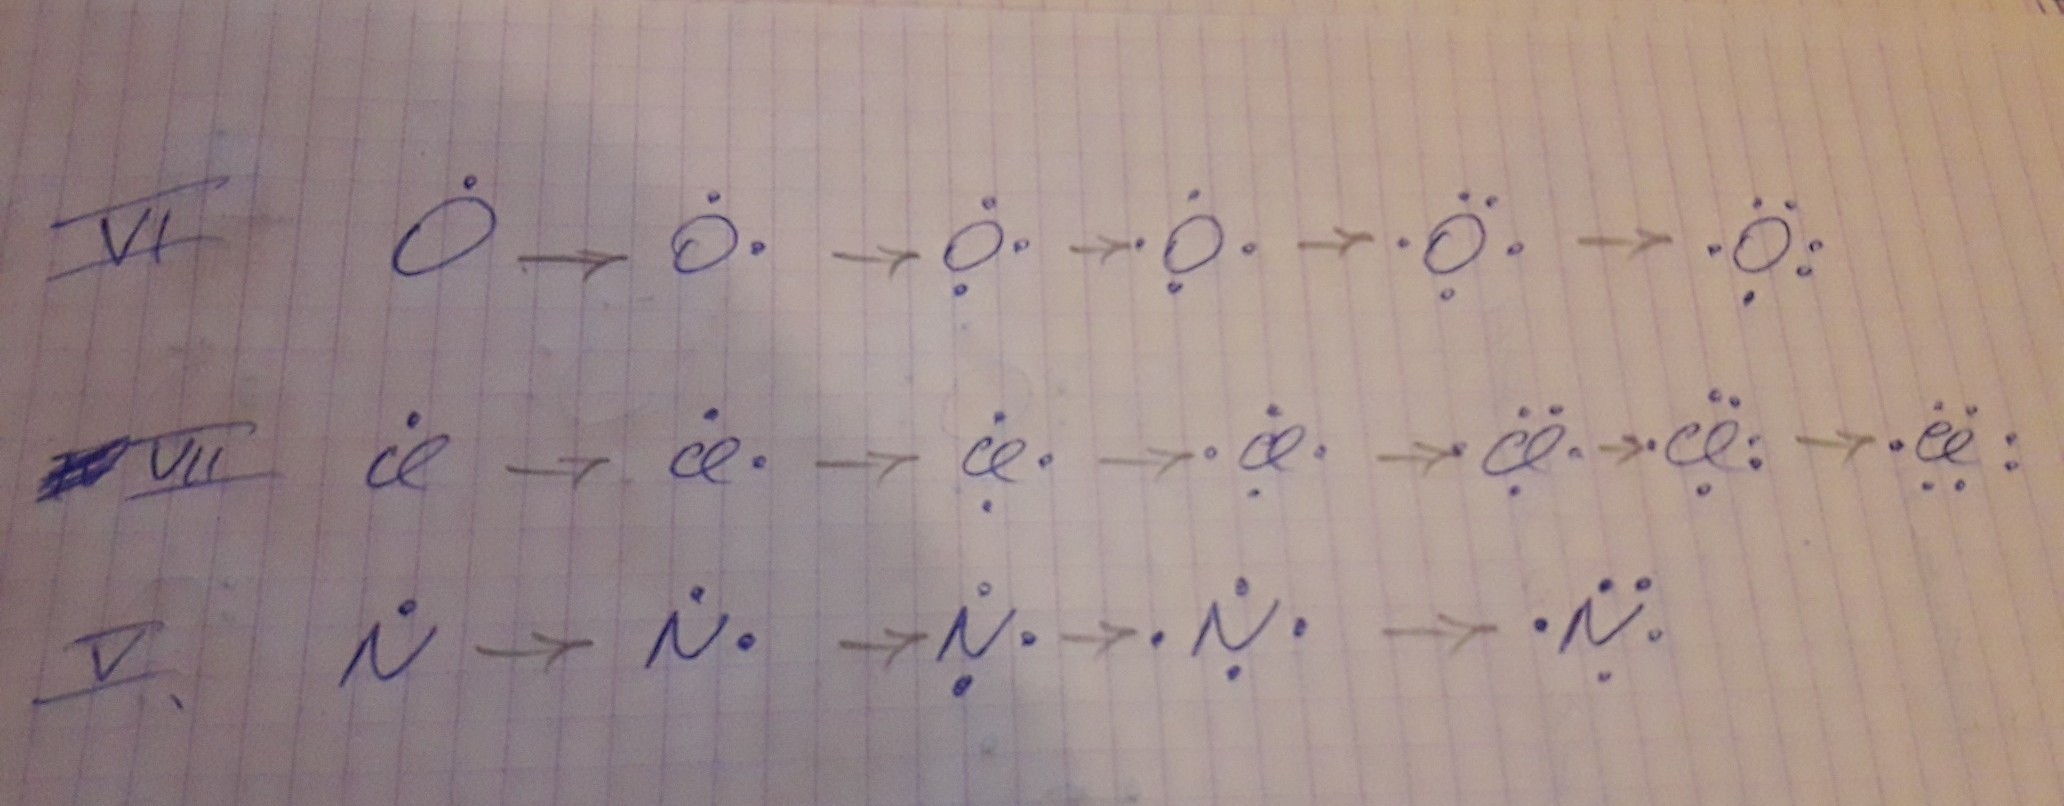 VI O → O → O → O → O → O
VII Cl → Cl → Cl → Cl → Cl → Cl → Cl
V N → N → N → N → N